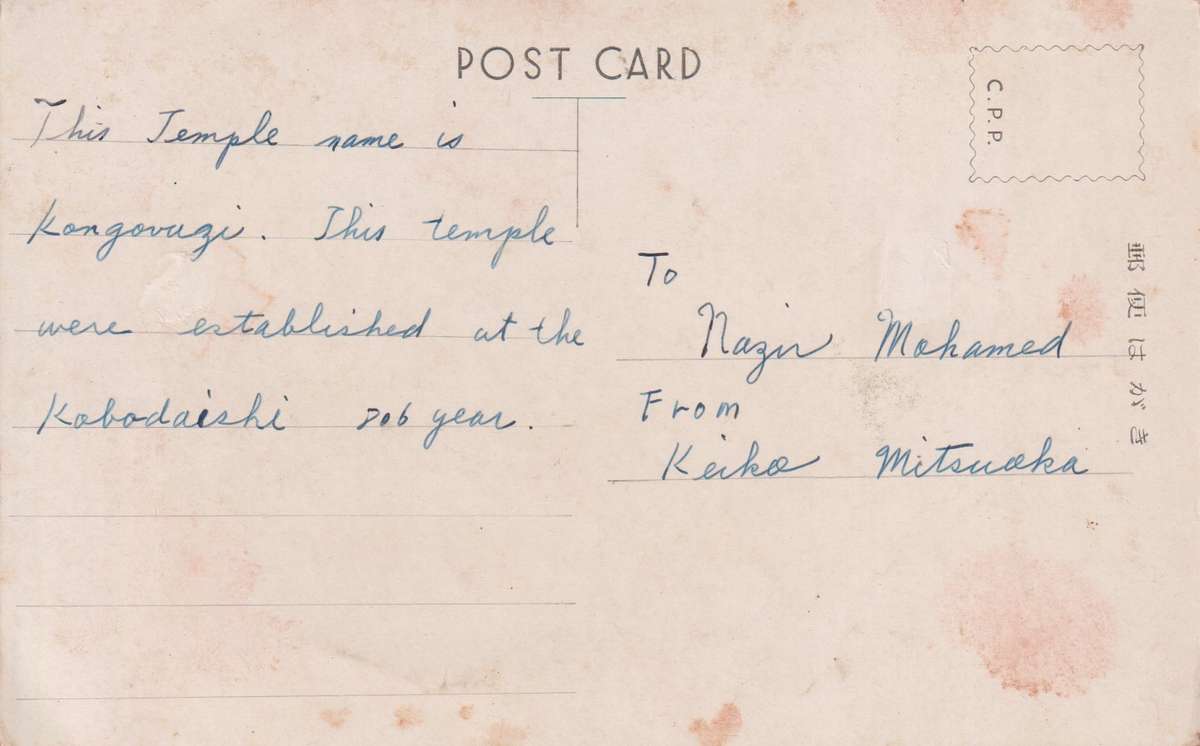 POST CARD
C.P.P.
This Temple name is
Kongovuzi. This temple
were established at the
Kobodaishi 806 year.
To
Nazir Mohamed
From
Keiko Mitsuoka
郵便はがき